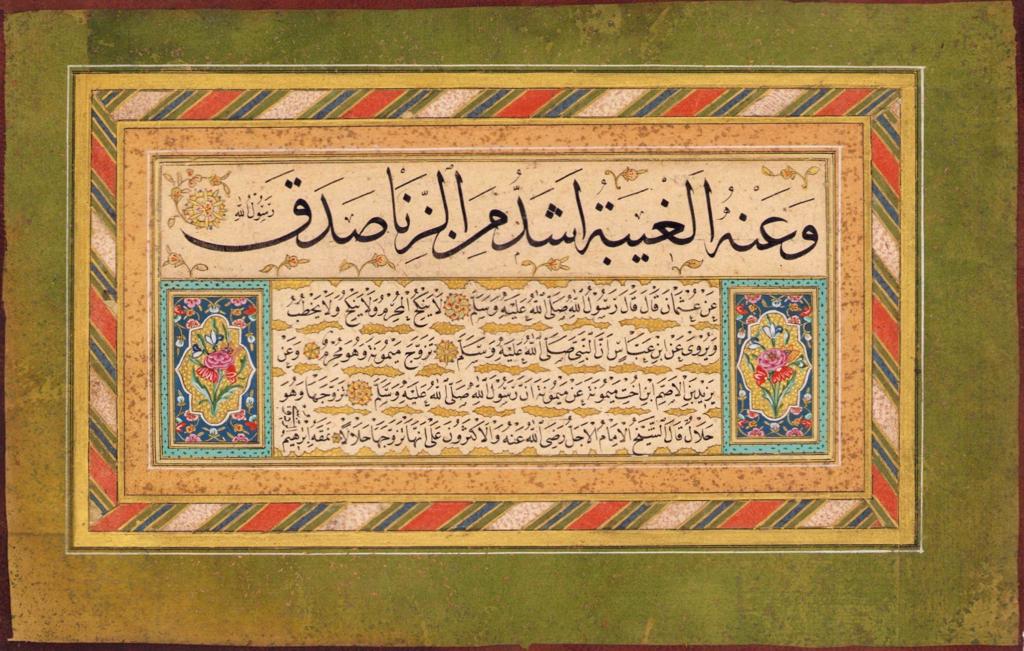 وَعَنْهُ الْغِيبَةُ اَشَدُّ مِنَ الزِّنَا صَدَقَ رَسُولُ اللهِ
عَنْ عُثْمَانَ قَالَ قَالَ رَسُولُ اللهِ صَلَّى اللهُ عَلَيْهِ وَسَلَّمَ لَا يَنْكِحُ الْمُحْرِمُ وَلَا يُنْكِحُ وَلَا يَخْطُبُ
وَيُرْوَى عَنْ ابْنِ عَبَّاسٍ اَنَّ النَّبِىَّ صَلَّى اللهُ عَلَيْهِ وَسَلَّمَ تَزَوَّجَ مَيْمُونَةَ وَهُوَ مُحْرِمٌ وَعَنْ
يَزِيدَ بْنِ الْاَصَمِّ ابْنِ اُخْتِ مَيْمُونَةَ عَنْ مَيْمُونَةَ اَنَّ رَسُولَ اللهِ صَلَّى اللهُ عَلَيْهِ وَسَلَّمَ تَزَوَّجَهَا وَهُوَ
حَلَالٌ قَالَ الشَّيْخُ الْاِمَامُ الْاَجَلُّ رَضِىَ اللهُ عَنْهُ وَالْاَكْثَرُونَ عَلَى اَنَّهُ تَزَوَّجَهَا حَلَالًا نمقه ابرهيم